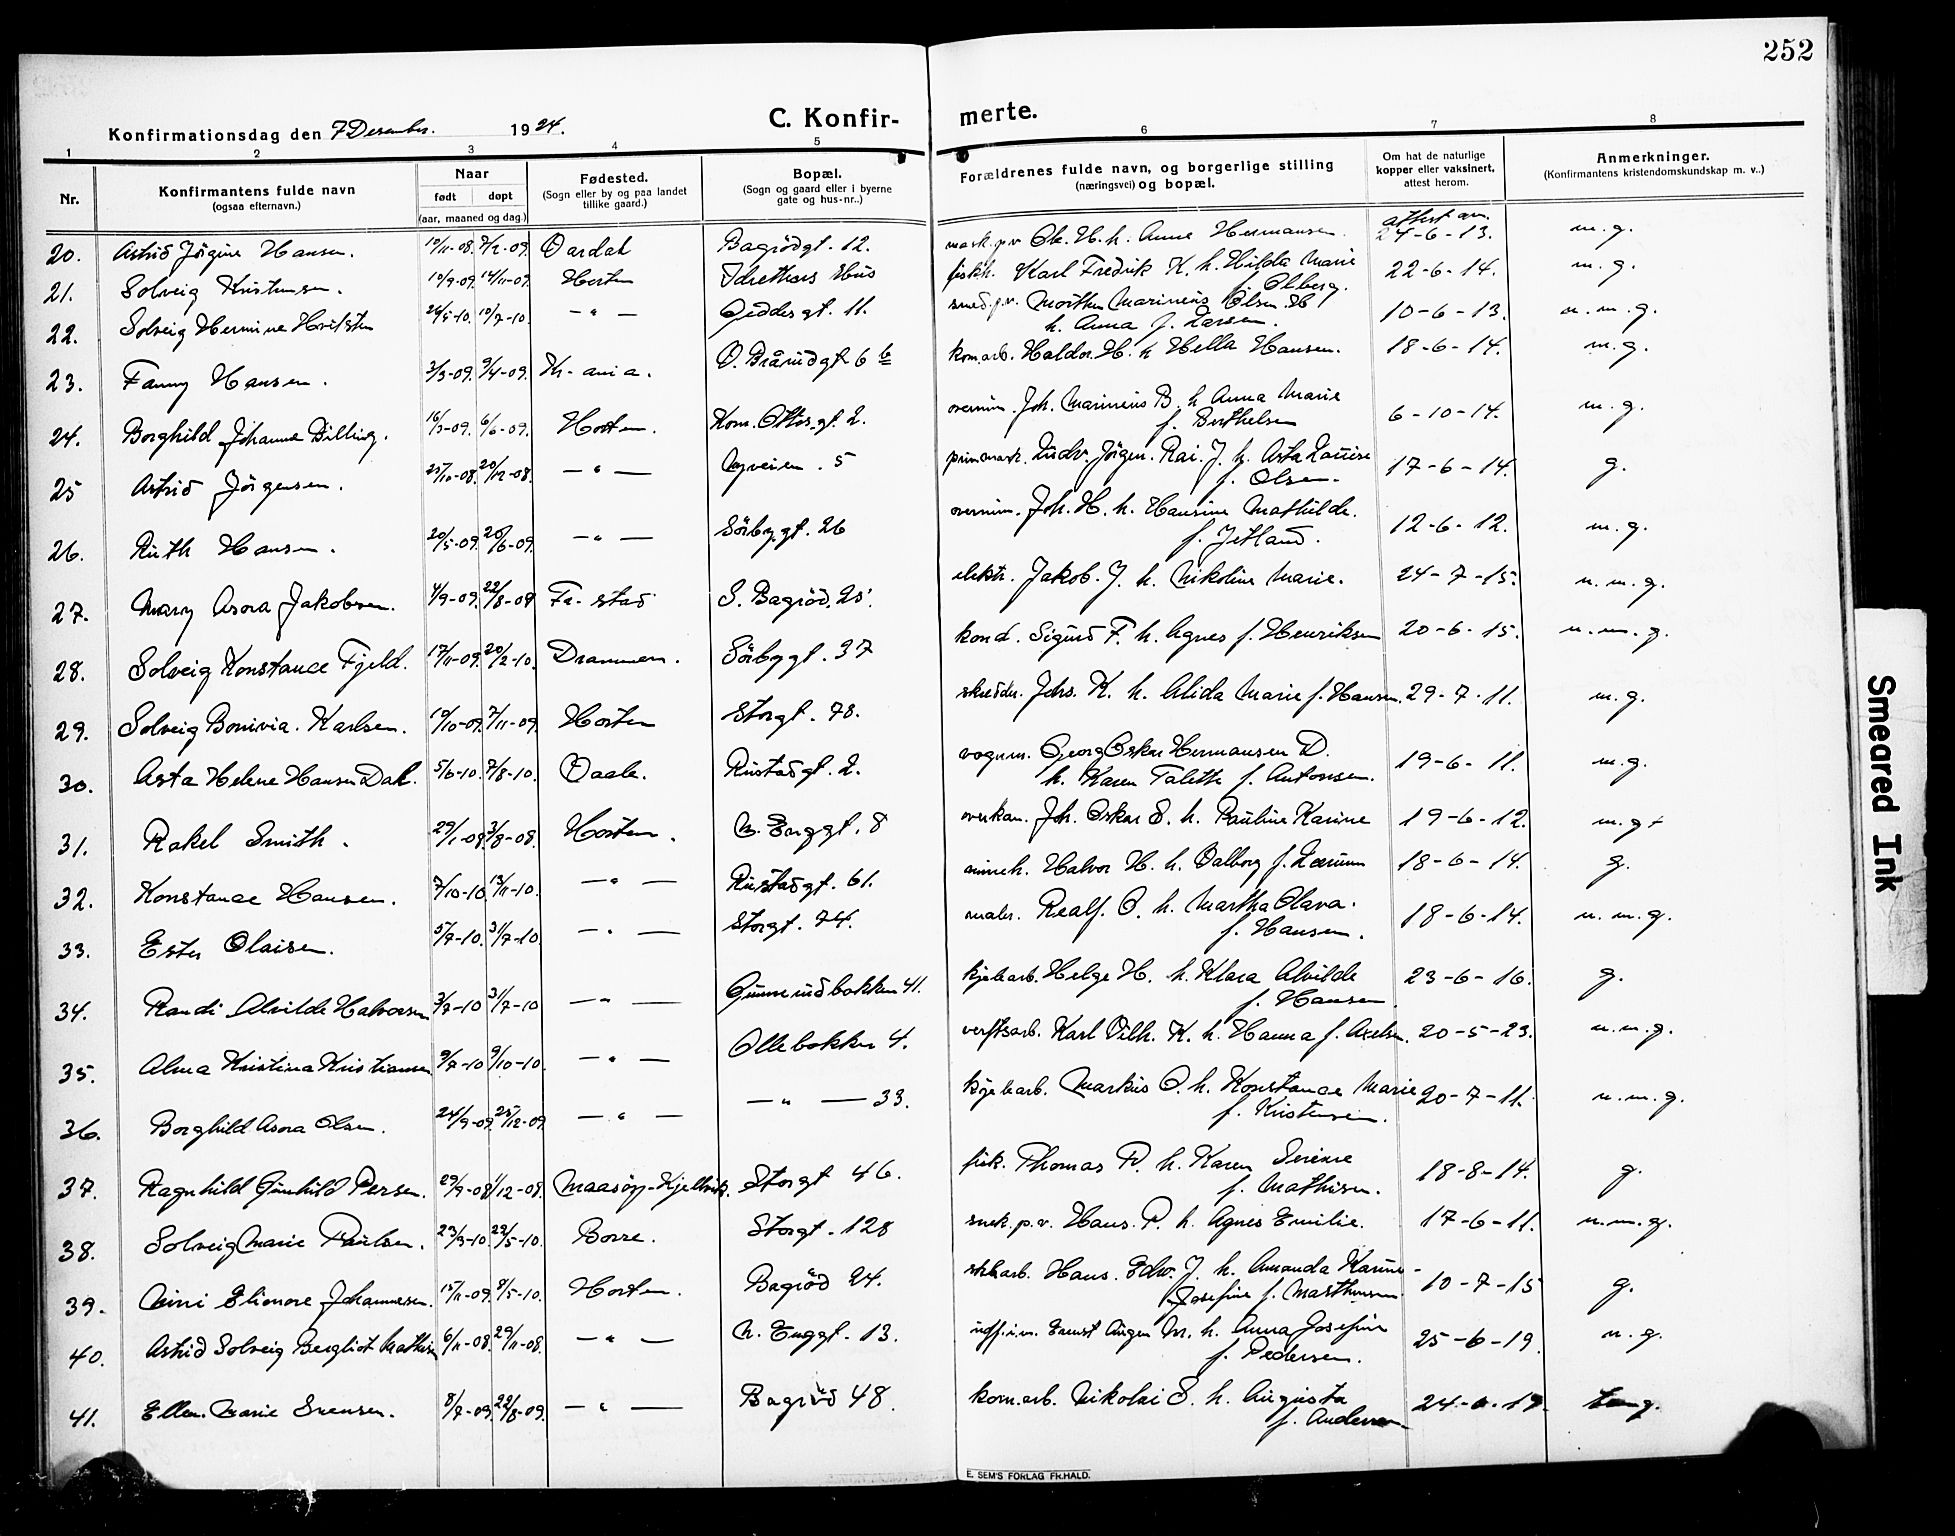 252
C. Konfir- merte.
Konfirmationsdag den 7 Desember. 1924.
1 2 3 4 5 6 7 8
Nr.
Konfirmantens fulde navn
(ogsaa efternavn.)
Naar
født døpt
(aar, maaned og dag.)
Fødested.
(Sogn eller by og paa landet
tillike gaard.)
Bopæl.
(Sogn og gaard eller i byerne
gate og hus-nr..)
Forældrenes fulde navn, og borgerlige stilling
(næringsvei) og bopæl.
Om hat de naturlige
kopper eller vaksinert,
attest herom.
Anmerkninger.
(Konfirmantens kristendomskundskap m. v..)
attest av.
20. Astrid Jörgine Hansen. 19/11-08. Bagrödgt. 12. H. h. Anne Hermansen. 24-6-13. m.g.
21. Solveig Kristensen. 10/9-09. 14/11-09. Horten Idrettens Hus fiskh. Karl Fredrik K. h. Hilda Marie 22-6-14. m.g.
f. Olberg.
22. Solveig Hermine 26/5-10. 10/7-10. — " — Geddesgt. 11. smed p.v. Morten Marinius Olsen H 10-6-13. n.m.g.
h. Anna f. Larsen.
23. Fanny Hansen. 3/3-09. 9/4-09. Kr-ania. O. Brårudgt 6 b kom.arb. Haldor H. h Hella Hansen. 18-6-14. m.g.
24. Borghild Johanne Billing. 16/3-09. 6/6-09. Horten. Kom. Ottos.gt. 2. overmin. Joh. Marinius B. h Anna Marie 6-10-14. m.g.
f. Berthelsen
25 Astrid Jörgensen. 25/10-08. 20/12-08. — " — Nyveien. 5 Ludv. Jörgen. Rai. J. h. Asta Louise 17-6-14. g.
f. Olsen.
26. Ruth Hansen. 20/5-09. 20/6-09. — " — Sörbygt. 26 overmin. Joh. H. h. Hansine Mathilde. 12-6-12. m.g.
f. Jetland.
27. Mary Asora Jakobsen. 4/9-09. 22/8-09 Fr.stad S. Bagröd. 25. elektr. Jakob. J. h. Nikoline Marie. 24-7-15. n.m.g.
28. Solveig Konstance Fjeld. 17/11-09. 20/2-10. Drammen. Sörbygt. 37 kond. Sigurd F. h. Agnes f. Henriksen 20-6-15. n.m.g.
29. Solveig Bonivia. Karlsen. 10/10-09. 7/11-09. Horten Storgt. 78. skrædder. Johs. K. h. Alida Marie f. Hansen. 29-7-11. m.g.
30. Asta Helene Hansen Dahl. 5/6-10. 7/8-10. Vaale. Rustadgt. 2. vognm. Georg Oskar Hermansen D. 19-6-11. m.g.
h. Karen Talette f. Antonsen.
31. Rakel Smith. 29/1-08. 3/8-08. Horten. N. Enggt. 8 overkan. Joh. Oskar S. h. Pauline Karine 19-6-12. m.g+
32. Konstance Hansen. 7/10-10. 13/11-10. — " — Rustadgt. 61. Halvor H. h. Valborg f. 18-6-14. g.
33. Ester Olaisen. 5/7-10. 31/7-10. — " — Storgt. 74. maler. Realf. O. h. Martha Olava. 18-6-14. n.m.g.
f. Hansen.
34. Randi Alvilde Halvorsen 3/7-10 31/7-10 — " — Gunnerudbakken 41. kjelearb. Helge H. h. Klara Alvilde 23-6-16. g.
f. Hansen
35. Alma Kristina Kristiansen 9/7-10 9/10-10. — " — Ollebakken 4. verftsarb. Karl Vilh. K. h. Hanna f. Axelsen. 20-5-23. n.m.g.
36. Borghild Asora Olsen. 24/9-09. 25/12-09. — " — — " — 33. kjelearb. Markus O. h. Konstance Marie 20-7-11. n.m.g.
f. Kristensen.
37. Ragnhild Gunhild Persen. 29/9-08 1/12-08. Maasöy-Kjelvik. Storgt 46. fisk. Thomas P. h. Karen Serine 18-8-14. g.
f. Mathisen.
38. Solveig Marie Paulsen. 23/3-10. 22/5-10. Borre. Storgt. 128 snek. p.v. Hans. P. h. Agnes Emilie. 17-6-11. n.m.g.
39. Elionore Johannessen. 15/11-09. 8/5-10. Horten. Bagröd 24. Hans. Edw. J. h. Amanda Karine- 10-7-15 g.
Josefine f. Marthinsen.
40. Astrid Solveig Bergliot Mathisen 6/11-08. 29/11-08. — " — N. Enggt. 13. Ernst Augen M. h. Anna Josefine 25-6-19. n.g.
f. Pedersen.
41. Ellen. Marie Svensen. 8/7-09. 22/8-09. — " — Bagröd 48. kom.arb. Nikolai S. h. Augusta
f. Andersen
E. SEM'S FORLAG FR.HALD.
Smeared Ink